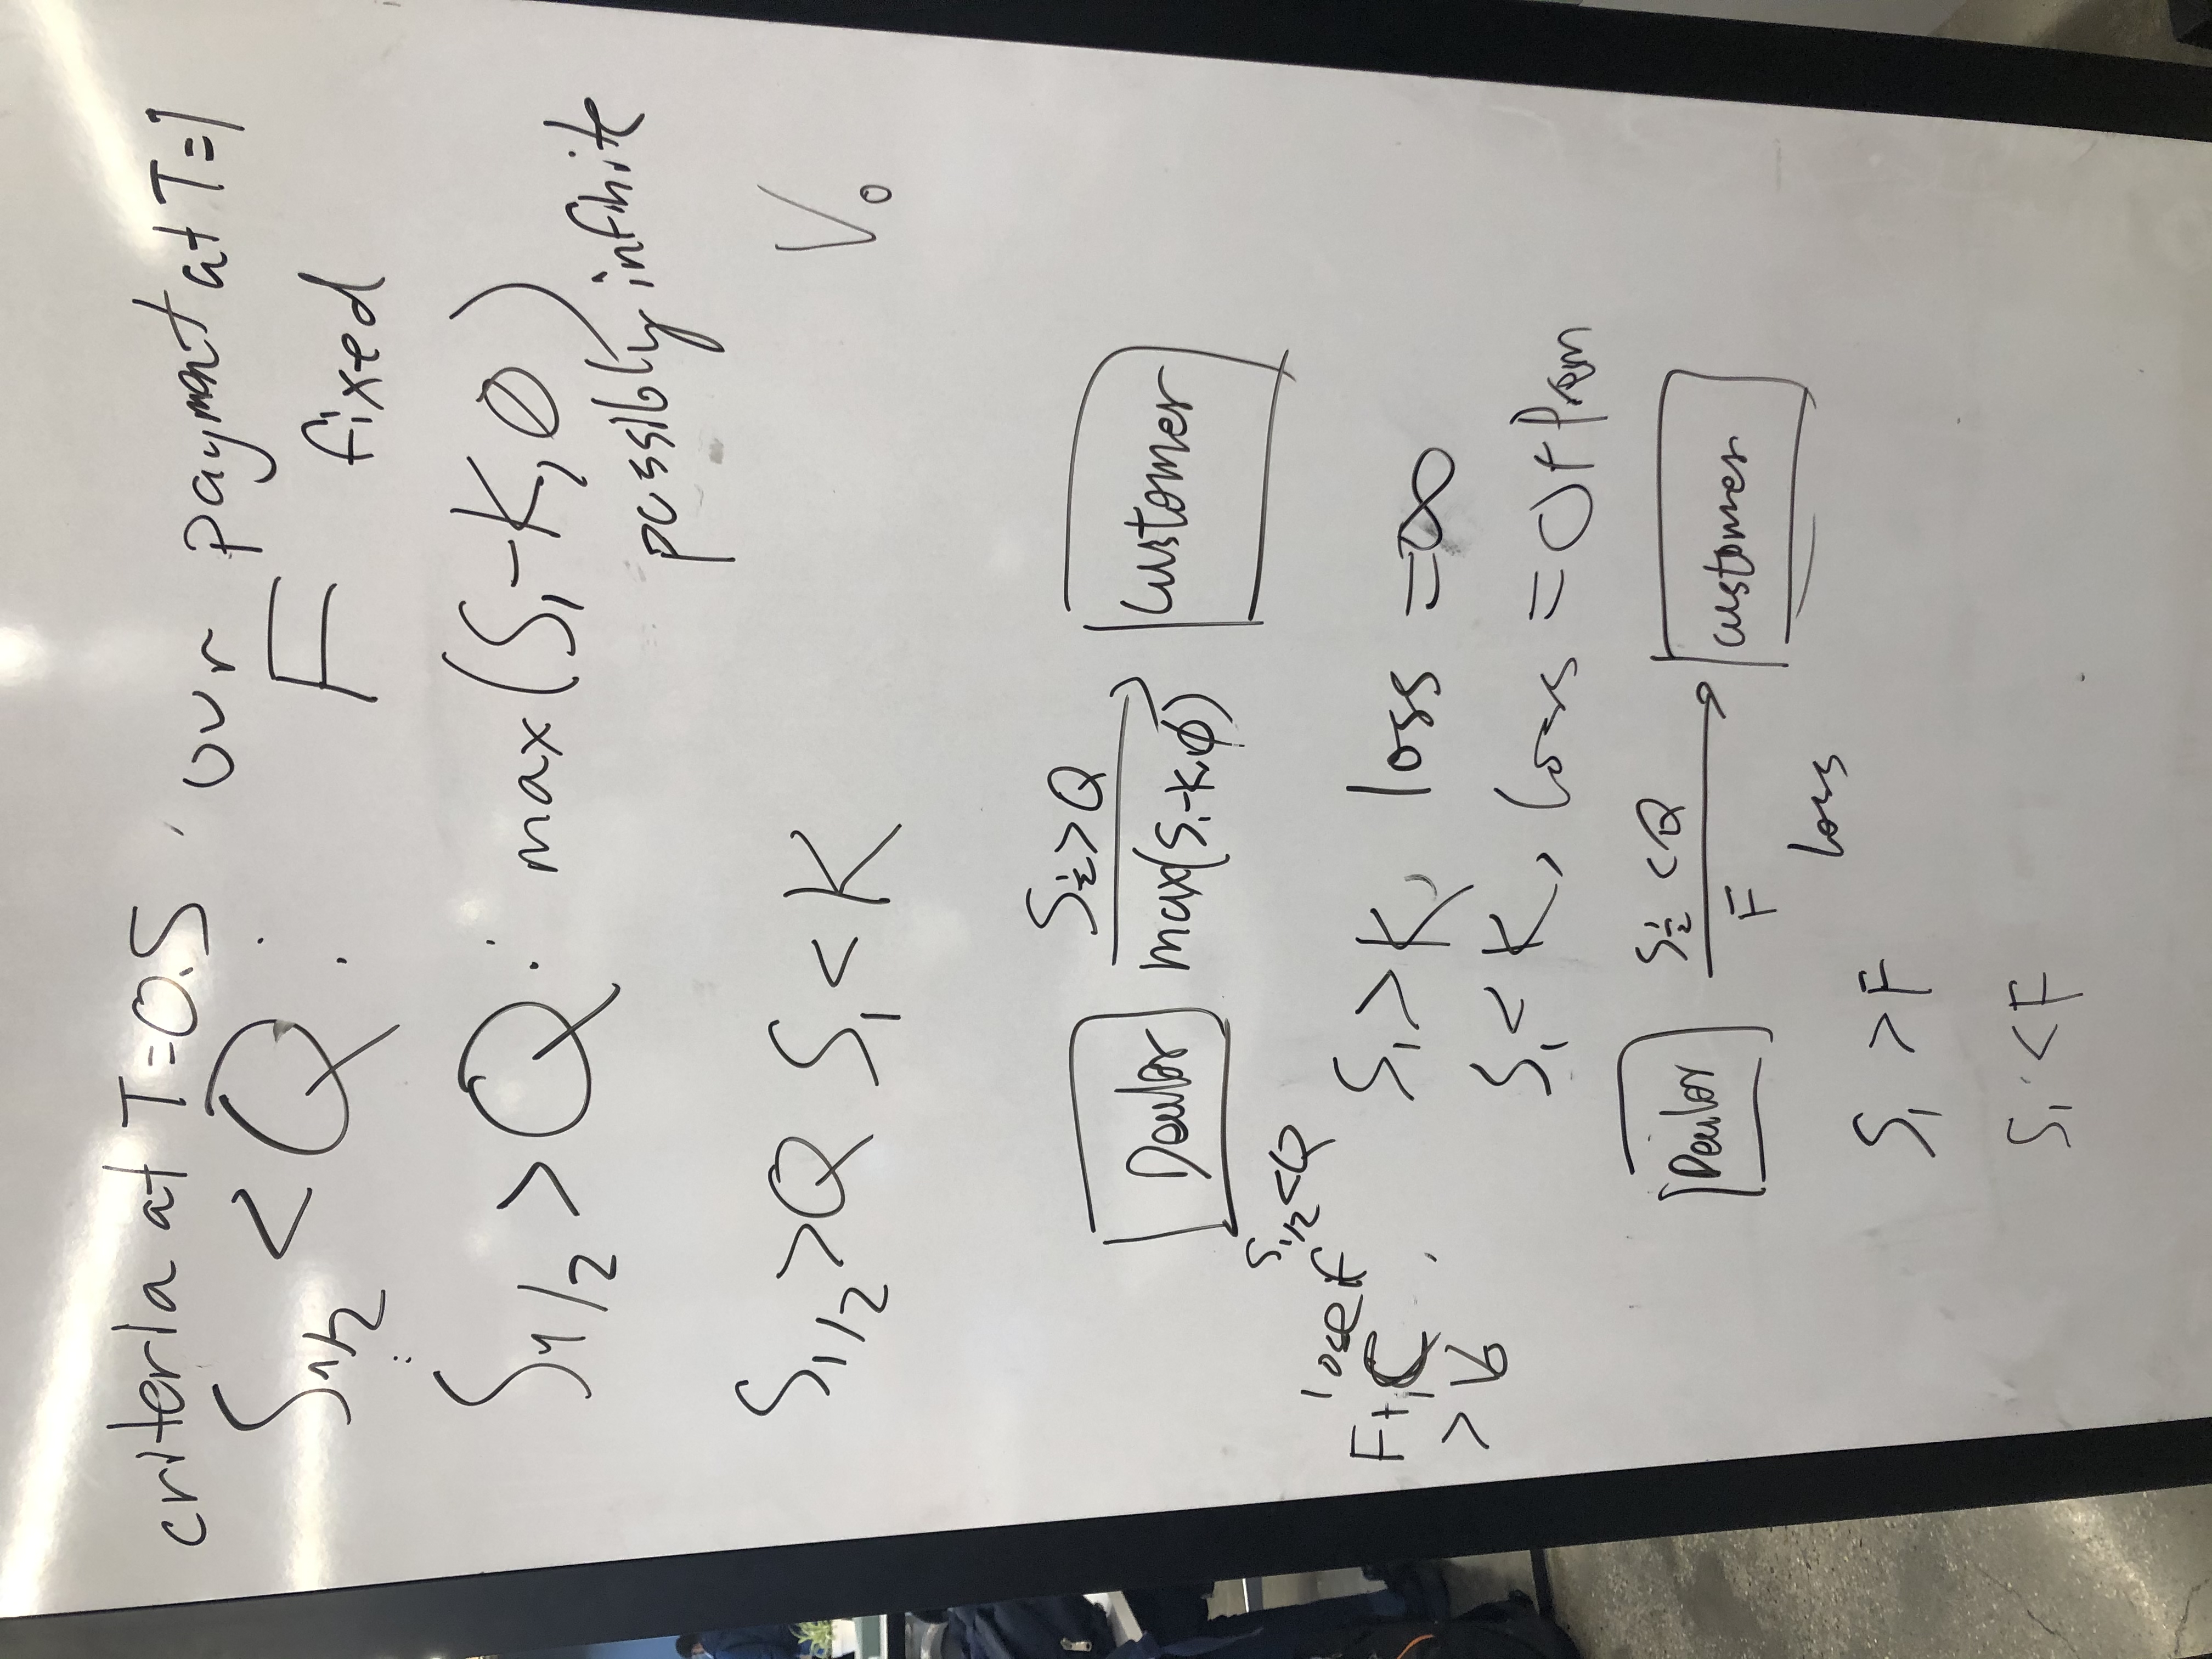 criteria at T=0.5 our payment at T=1
S1/2 < Q : F fixed
S1/2 > Q : max(S1-K, Ø)
possibly infinite
S1/2 > Q S1 < K
V0
S½ > Q
Dealor max(S1-K, Ø) Customer
S1/2 < Q
lose if
F + C
> V0
S1 > K, loss = ∞
S1 < K, loss = 0 + Prem
S½ < Q
Dealor F customer
loss
S1 > F
S1 < F